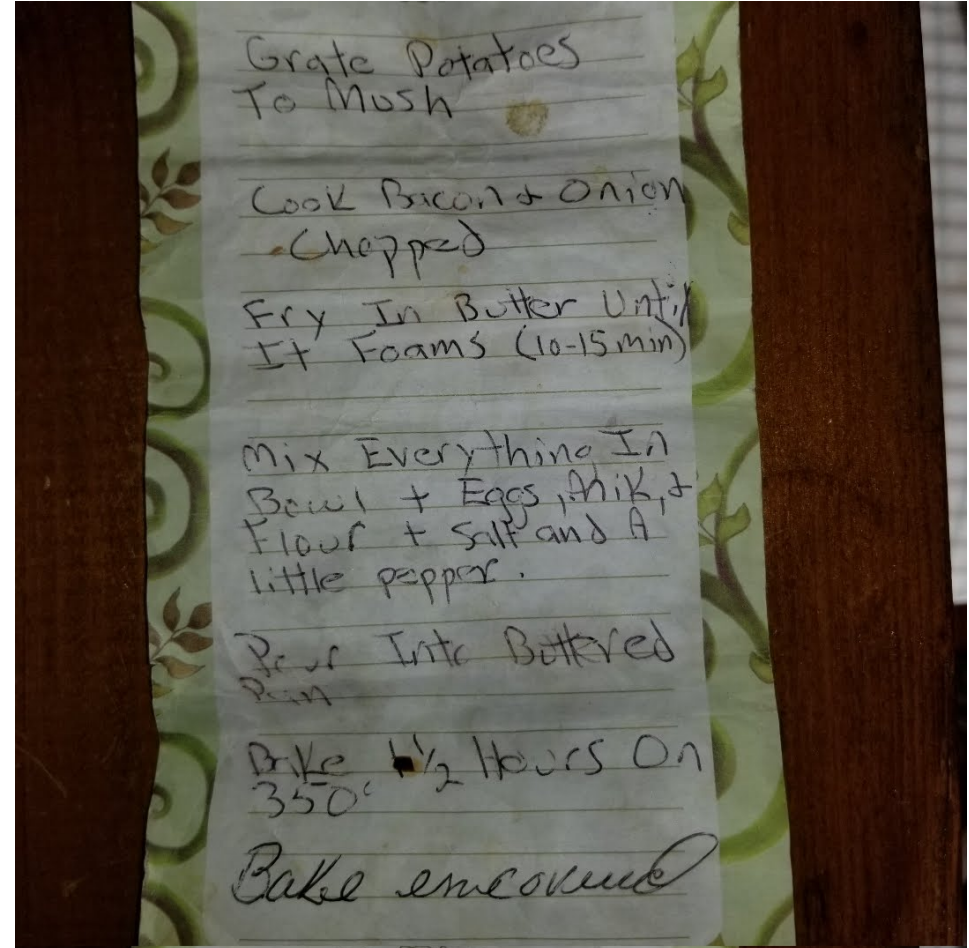 Grate Potatoes
To Mush
Cook Bacon & Onion
Chopped
Fry In Butter Until
It Foams (10-15 min)
Mix Everything In
Bowl + Eggs, Milk, &
Flour + Salt and A
little pepper.
Pour Into Buttered
Pan
Bake 1 1/2 Hours On
350°
Bake uncovered